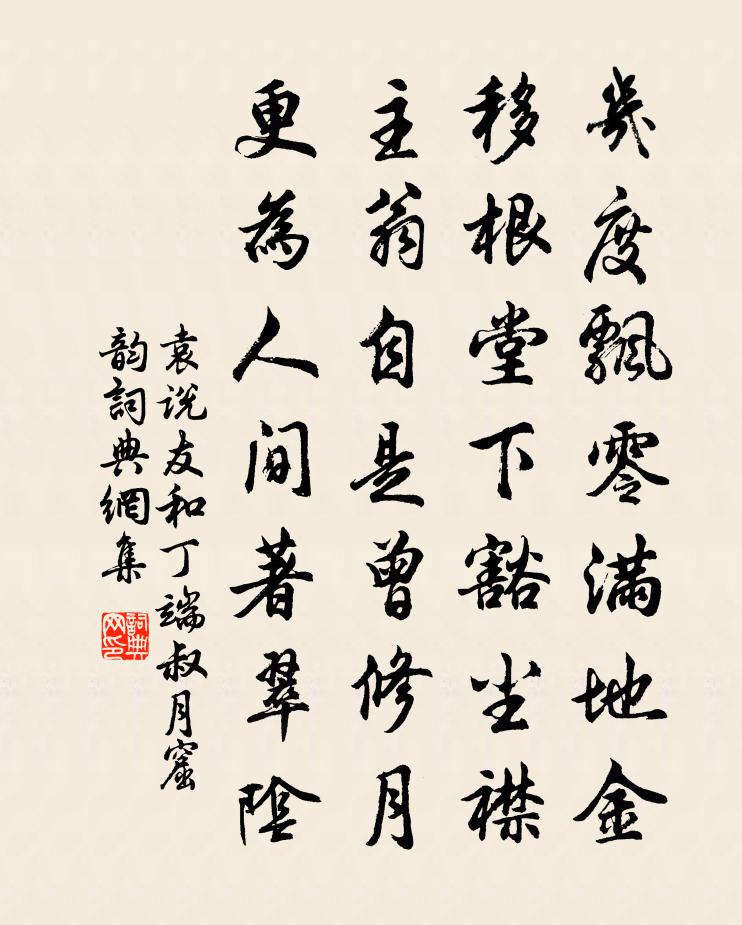 幾度飄零滿地金
移根堂下豁尘襟
主翁自是曾修月
更為人间著翠陰
袁说友和丁端叔月窟
韵詞典網集
詞典网印